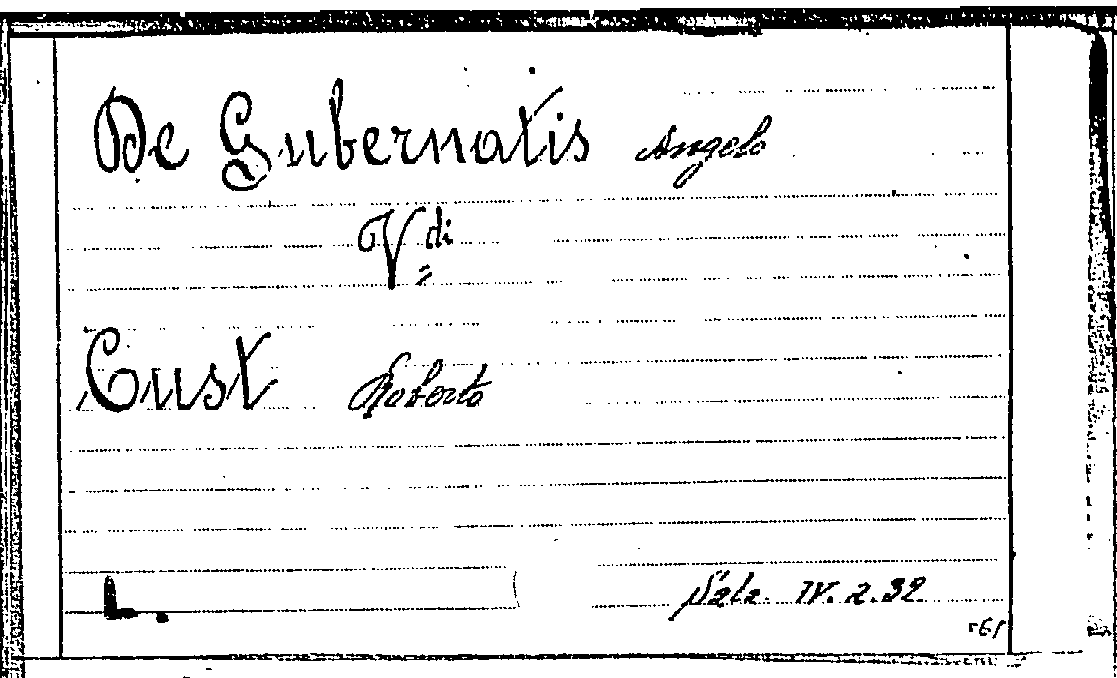 De Gubernatis Angelo
V di
Cust Roberto
L.
Sala IV. 2. 32